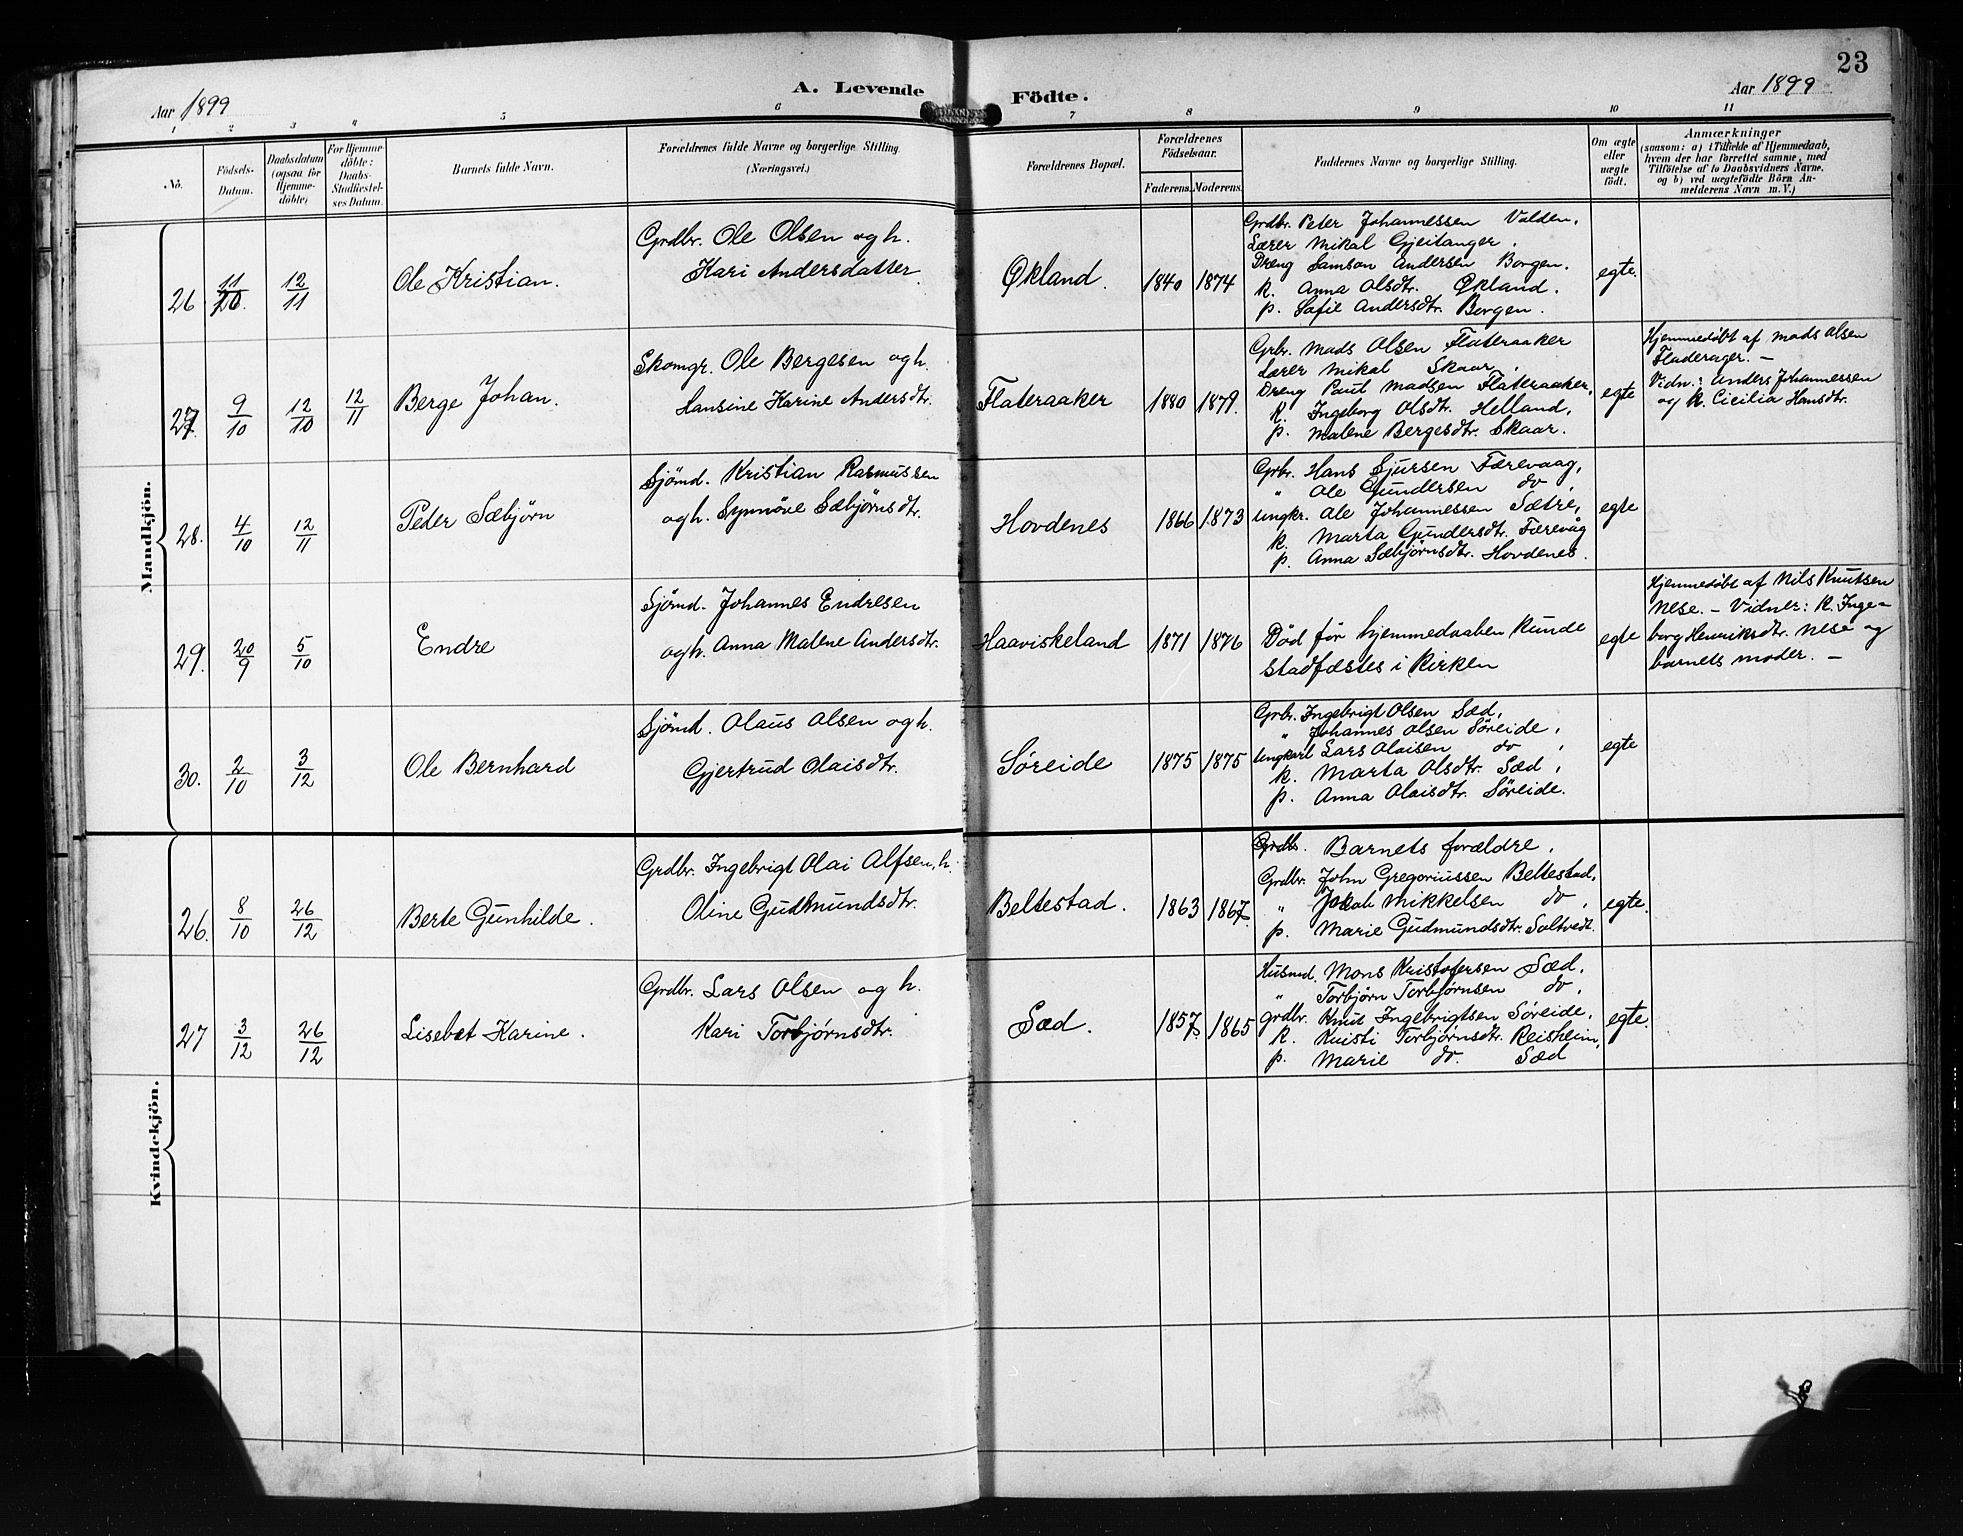 23
Aar 1899
A. Levende Födte.
Aar 1899
1 2 3 4 5 6 7 8 9 10 11
No.
Födsels-Datum.
Daabsdatum (ogsaa for Hjemme-döbte)
For Hjemme-döbte: Daabs-Stadfæstel-ses Datum.
Barnets fulde Navn.
Forældrenes fulde Navne og borgerlige Stilling. (Næringsvei.)
Forældrenes Bopæl.
Forældrenes Födselsaar.
Faderens.
Moderens.
Faddernes Navne og borgerlige Stilling.
Om ægte eller uægte födt.
Anmærkninger
(saasom: a) i Tilfælde af Hjemmedaab,
hvem der har forrettet samme, med
Tilföielse af to Daabsvidners Navne,
og b) ved uægtefödte Börn An-
melderens Navn m. V.)
Mandkjön.
26 11/10 12/11
Ole Kristian.
Grdbr. Ole Olsen og h.
Kari Andersdatter
Økland.
1840 1874
Grdbr. Peter Johannessen Valden.
Lærer Mikal Gjeitanger.
Dreng Samson Andersen Borgen.
k. Anna Olsdtr. Økland.
p. Sofie Andersdtr. Borgen.
egte.
27. 9/10 12/10 12/11
Berge Johan.
Skomgr. Ole Bergesen og h.
Hansine Karine Andersdtr.
Flateraaker
1880 1879.
Grbr. Mads Olsen Flateraaker
Lærer Mikal Skaar.
Dreng Paul Madsen Flateraaker,
k. Ingeborg Olsdtr. Helland,
p. Malene Bergesdtr. Skaar.
egte
Hjemmedøbt af Mads Olsen
Fladerager. –
Vidn.: Anders Johannessen
og k. Cicilia Hansdtr.
28. 4/10 12/11
Peder Sæbjørn
Sjømd. Kristian Rasmussen
og h. Synnöve Sæbjørnsdtr.
Hovdenes
1866 1873
Grbr. Hans Sjursen Færevaag,
" Ole Gundersen do,
Ungkr. Ole Johannessen Sætre,
k. Marta Gundersdtr. Færevåg
p. Anna Sæbjørnsdtr. Hovdenes.
egte
29. 20/9 5/10
Endre
Sjømd. Johannes Endresen
og h. Anna Malene Andersdtr.
Haaviskeland
1871 1876
Død før hjemmedaaben kunde
stadfæstes i Kirken
egte
Hjemmedøbt af Nils Knutsen
Nese. – Vidner: K. Inge-
borg Henriksdtr. Nese og
barnets moder. –
30. 2/10 3/12
Ole Bernhard
Sjömd. Olaus Olsen og h.
Gjertrud Olaisdtr.
Søreide
1875 1875
Grbr. Ingebrigt Olsen Sæd,
" Johannes Olsen Søreide,
Ungkarl Lars Olaisen do,
k. Marta Olsdtr. Sæd,
p. Anna Olaisdtr. Søreide.
egte
Kvindekjön.
26. 8/10 26/12
Berte Gunhilde.
Grdbr. Ingebrigt Olai Alfsen, h.
Oline Gudmundsdtr.
Beltestad.
1863 1867.
Grdbr. Barnets forældre,
Grdbr. John Gregoriussen Beltestad,
" Jakob Mikkelsen do,
p. Marie Gudmundsdtr. Saltvedt.
egte.
27 3/12 26/12
Lisebet Karine.
Grdbr. Lars Olsen og h.
Kari Torbjørnsdtr.
Sæd.
1857. 1865
Husmd. Mons Kristofersen Sæd,
" Torbjörn Torbjörnsen do,
grdbr. Knut Ingebrigtsen Søreide,
k. Kristi Torbjørnsdtr. Reisheim,
p. Marie do. Sæd
egte.